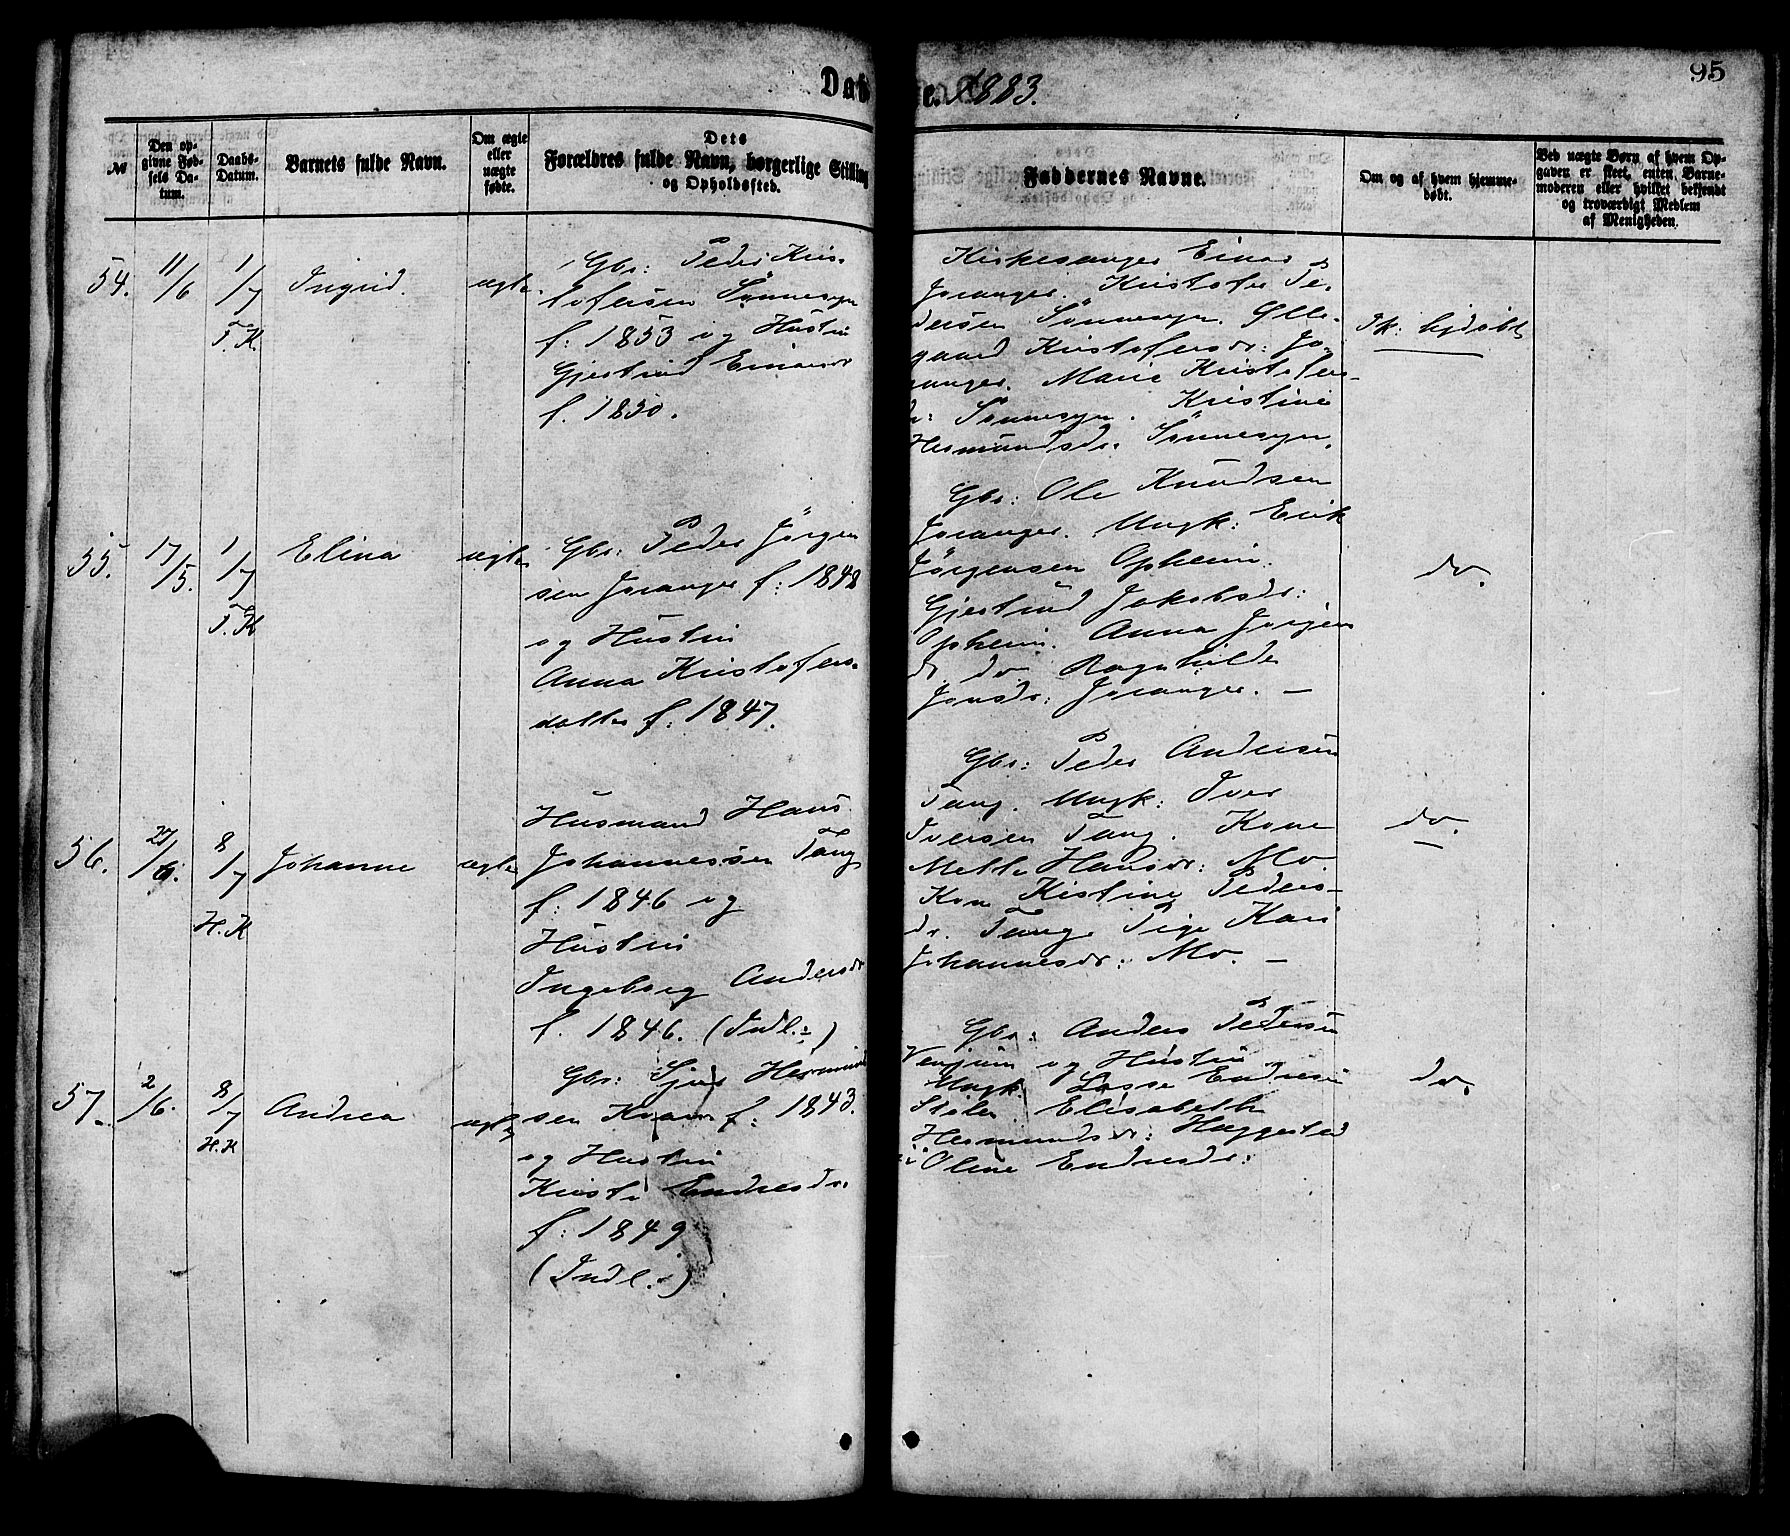 Døbte. 1883.
95
№
Den opgivne Fødsels Datum.
Daabs-Datum.
Barnets fulde Navn.
Om ægte eller uægte fødte.
Dets Forældres fulde Navn, borgerlige Stilling og Opholdssted.
Faddernes Navne.
Om og af hvem hjemmedøbt.
Ved uægte Børn af hvem Opgaven er skeet, enten Barnemoderen eller hvilket bekjendt og troværdigt Medlem af Menigheden.
54.
11/6
1/7
T. K.
Ingrid.
ægte.
Gbr: Peder Kris-
tofersen Sønnesyn
f. 1853 og Hustru
Gjertrud Einarsdr
f. 1850.
Kirkesanger Einar
Joranger. Kristofer Pe-
dersen Sønnesyn. Olle-
gaard Kristofersdr: Jo-
ranger. Marie Kristofers-
dr: Sønnesyn. Kristine
Hermundsdr. Sønnesyn.
Ik: hjdøbt
55.
17/5.
1/7
T. K
Elina
ægte
Gbr: Peder Jørgen
sen Joranger f: 1848
og Hustru
Anna Kristofers-
datter f: 1847.
Gbr: Ole Knudsen
Joranger. Ungk: Erik
Jørgensen Opheim.
Gjertrud Jakobsdr:
Opheim. Anna Jørgens
dr. do. Ragnhilde
Jonsdr: Joranger. —
do.
56.
27/6.
8/7
H. K
Johanne
ægte
Husmand Hans
Johannessen Tang
f: 1846 og
Hustru
Ingeborg Andersdr
f. 1846. (Indl.:)
Gbr: Peder Andersen
Tang. Ungk: Iver
Iversen Tang. Kone
Mette Hansdr: Mo
Kone Kristine Peders-
dr. Tang. Pige Kari
Johannesdr: Mo. —
do.
57.
2/6.
8/7
H. K
Andrea
ægte
Gbr: Sjur Hermund
sen Kvam f: 1843.
og Hustru
Kirsti Endresdr.
f: 1849
(Indl.:)
Gbr: Anders Pedersen
Venjum og Hustru
Ungk. Lasse Endresen
Elisabeth
Hermundsdr: Haggestad
Oline Endresdr:
do.